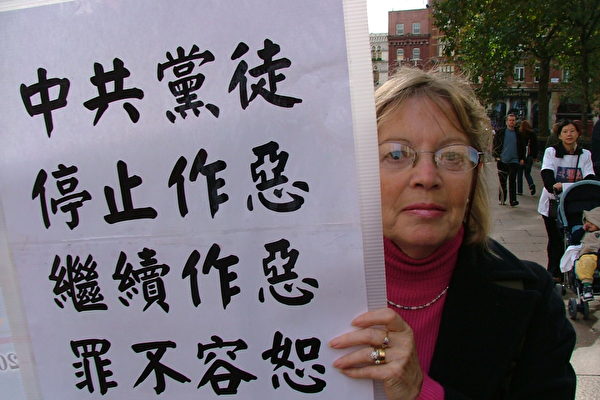 中共黨徒
停止作惡
繼續作惡
罪不容恕